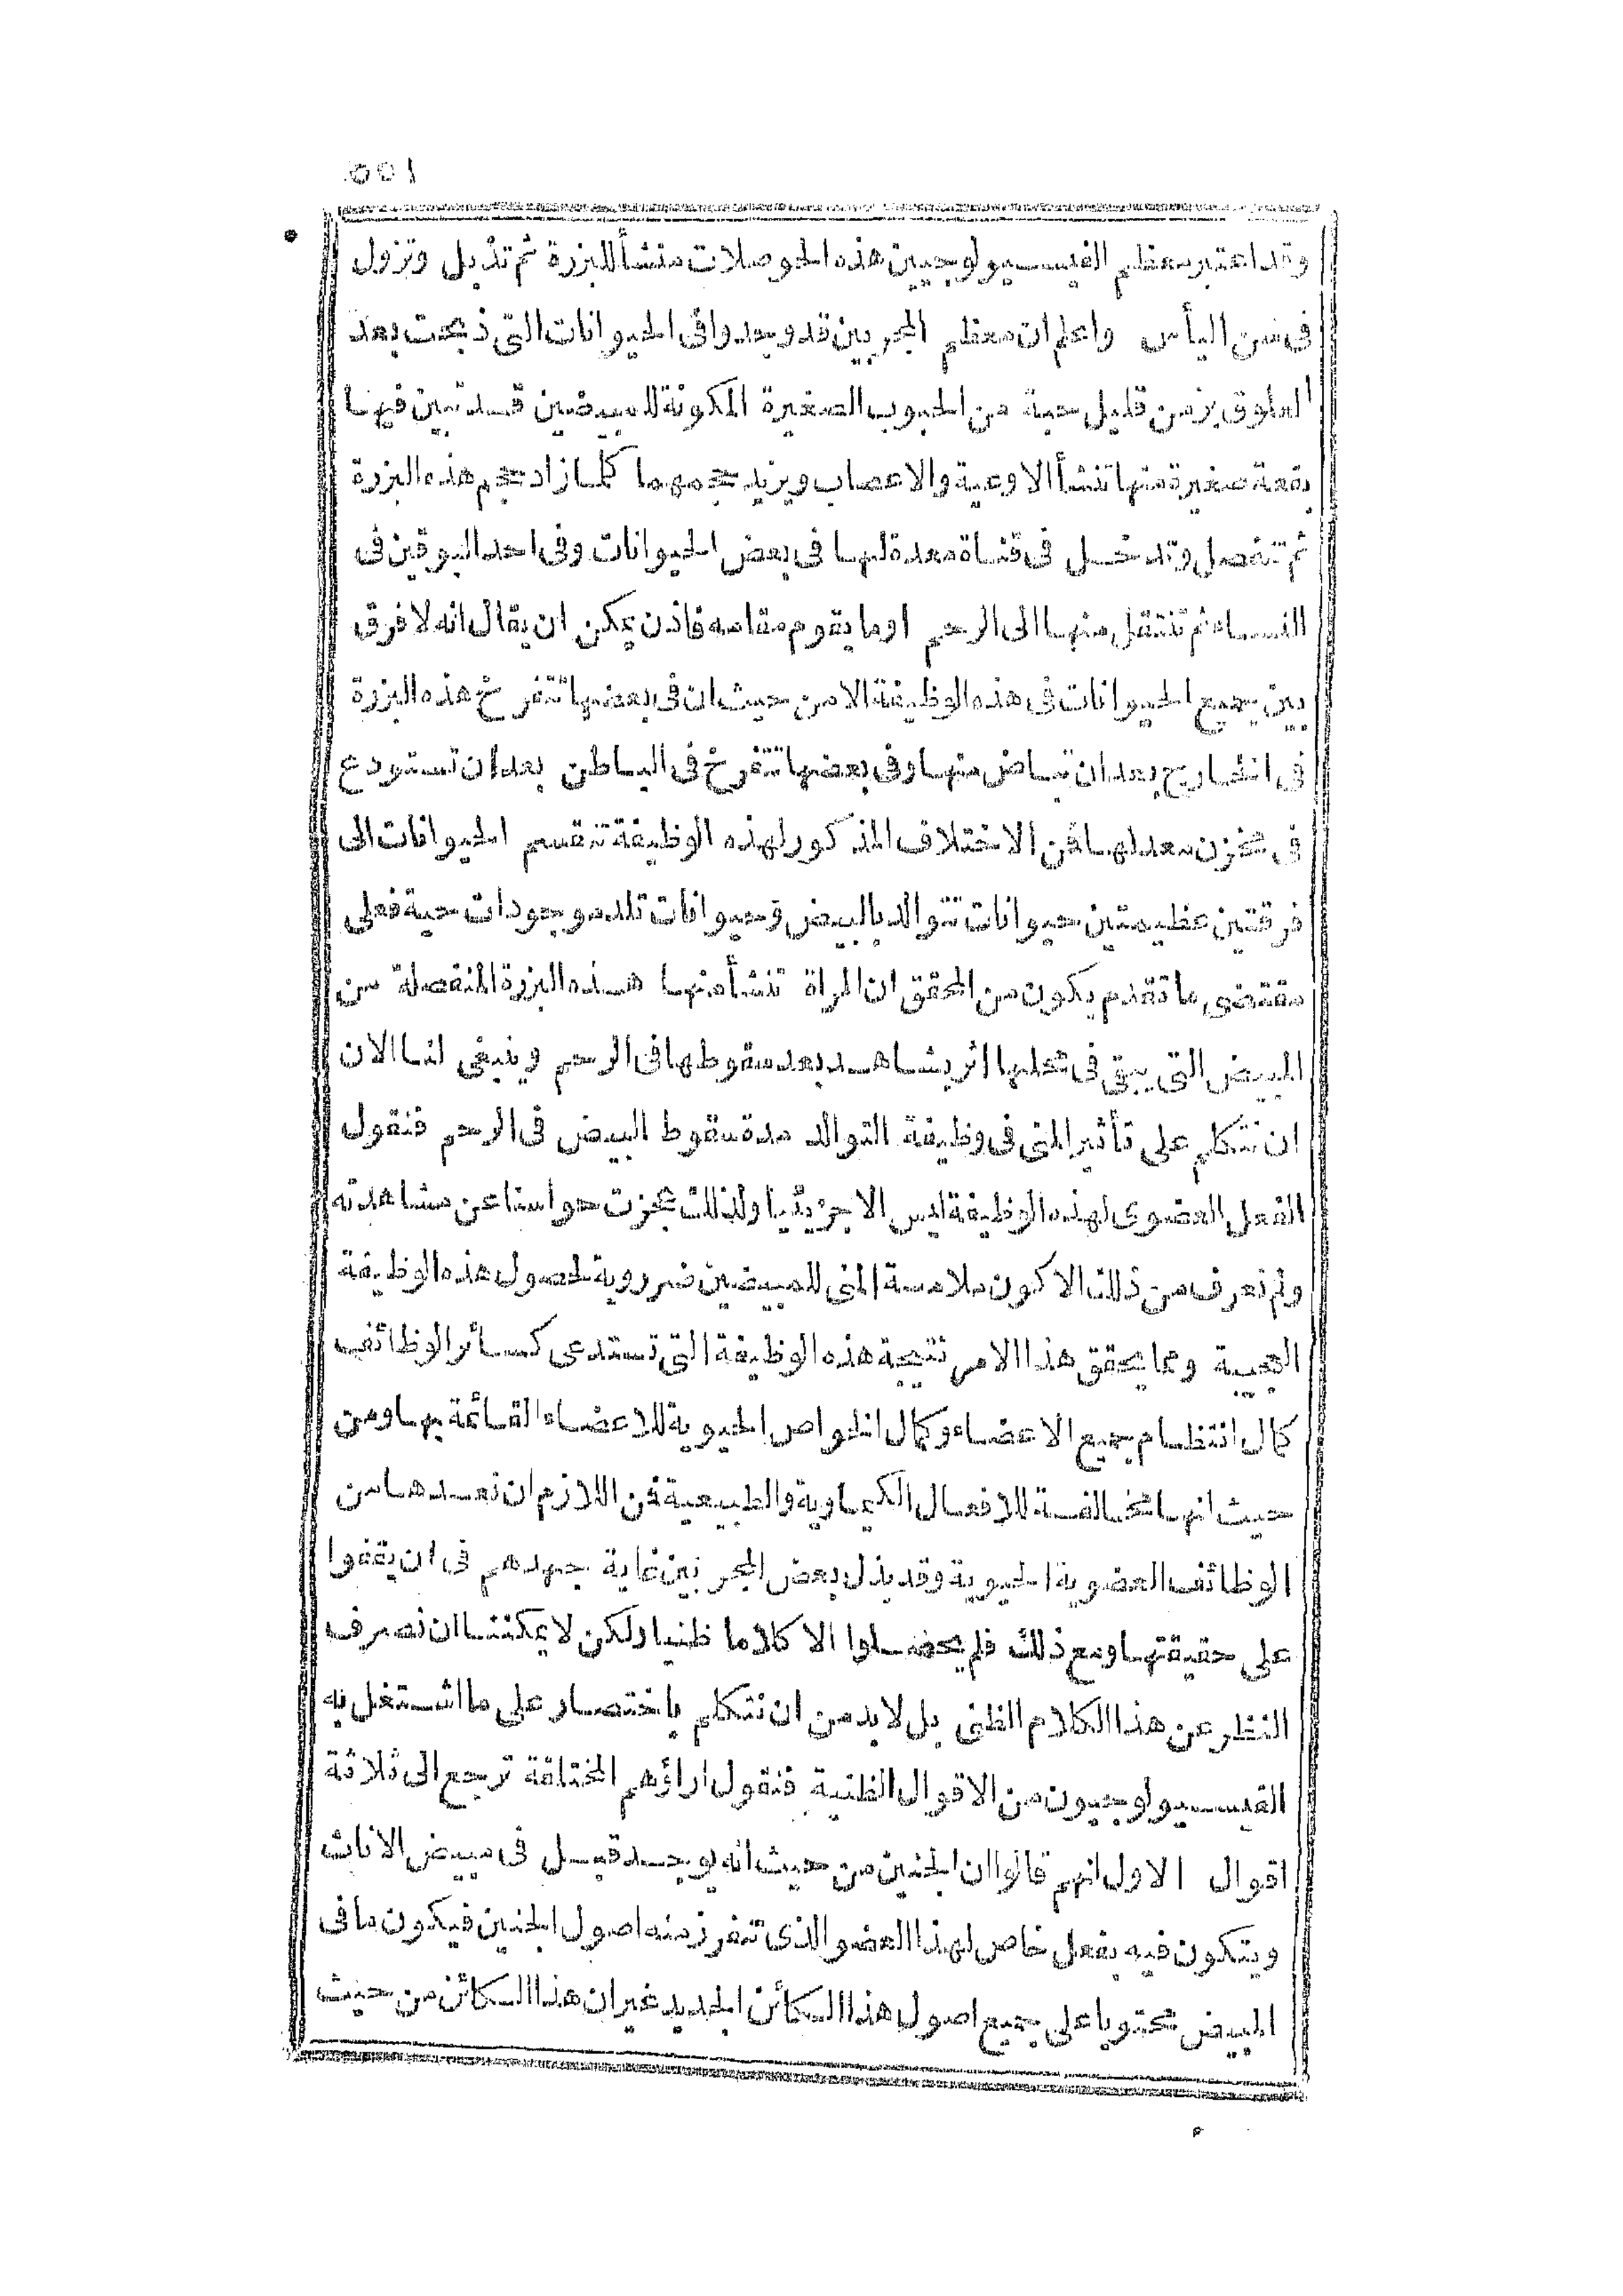 ١٥٥
وقد اعتبر معظم الفيسيولوجيين هذه الحوصلات منشأ للبزرة ثم تذبل وتزول
فى سن اليأس واعلم ان معظم المجربين قد وجدوا فى الحيوانات التى ذبحت بعد
العلوق بزمن قليل حبة من الحبوب الصغيرة المكونة للمبيضين قد تبين فيها
بقعة صغيرة منها تنشأ الاوعية والاعصاب ويزيد حجمهما كلما زاد حجم هذه البزرة
ثم تنفصل وتدخل فى قناة معدة لها فى بعض الحيوانات وفى احد البوقين فى
النساء ثم تنتقل منها الى الرحم او ما يقوم مقامه فاذن يمكن ان يقال انه لا فرق
بين جميع الحيوانات فى هذه الوظيفة الا من حيث ان فى بعضها تتفرخ هذه البزرة
فى الخارج بعد ان تباض منها وفى بعضها تتفرخ فى الباطن بعد ان تستودع
فى مخزن معد لها فمن الاختلاف المذكور لهذه الوظيفة تنقسم الحيوانات الى
فرقتين عظيمتين حيوانات تتوالد بالبيض وحيوانات تلد موجودات حية فعلى
مقتضى ما تقدم يكون من المحقق ان المراة تنشأ منها هذه البزرة المنفصلة من
المبيض التى يبقى فى محلها اثر يشاهد بعد سقوطها فى الرحم وينبغى لنا الان
ان نتكلم على تأثير المنى فى وظيفة التوالد مدة سقوط البيض فى الرحم فنقول
الفعل العضوى لهذه الوظيفة ليس الا جزئيا ولذلك عجزت حواسنا عن مشاهدته
ولم نعرف من ذلك الا كون ملامسة المنى للمبيضين ضرروية لحصول هذه الوظيفة
العجيبة ومما يحقق هذا الامر نتيجة هذه الوظيفة التى تستدعى كسائر الوظائف
كمال انتظام جميع الاعضاء وكمال الخواص الحيوية للاعضاء القائمة بها ومن
حيث انها مخالفة للافعال الكيماوية والطبيعية فمن اللازم ان نعدها من
الوظائف العضوية الحيوية وقد بذل بعض المجربين غاية جهدهم فى ان يقفوا
على حقيقتها ومع ذلك فلم يحصلوا الا كلاما ظنيا ولكن لا يمكننا ان نصرف
النظر عن هذا الكلام الظنى بل لا بد من ان نتكلم باختصار على ما اشتغل به
الفيسيولوجيون من الاقوال الظنية فنقول اراؤهم المختلفة ترجع الى ثلاثة
اقوال الاول انهم قالوا ان الجنين من حيث انه يوجد قبل فى مبيض الاناث
ويتكون فيه بفعل خاص لهذا العضو الذى تنفرز منه اصول الجنين فيكون ما فى
المبيض محتويا على جميع اصول هذا الكائن الجديد غير ان هذا الكائن من حيث